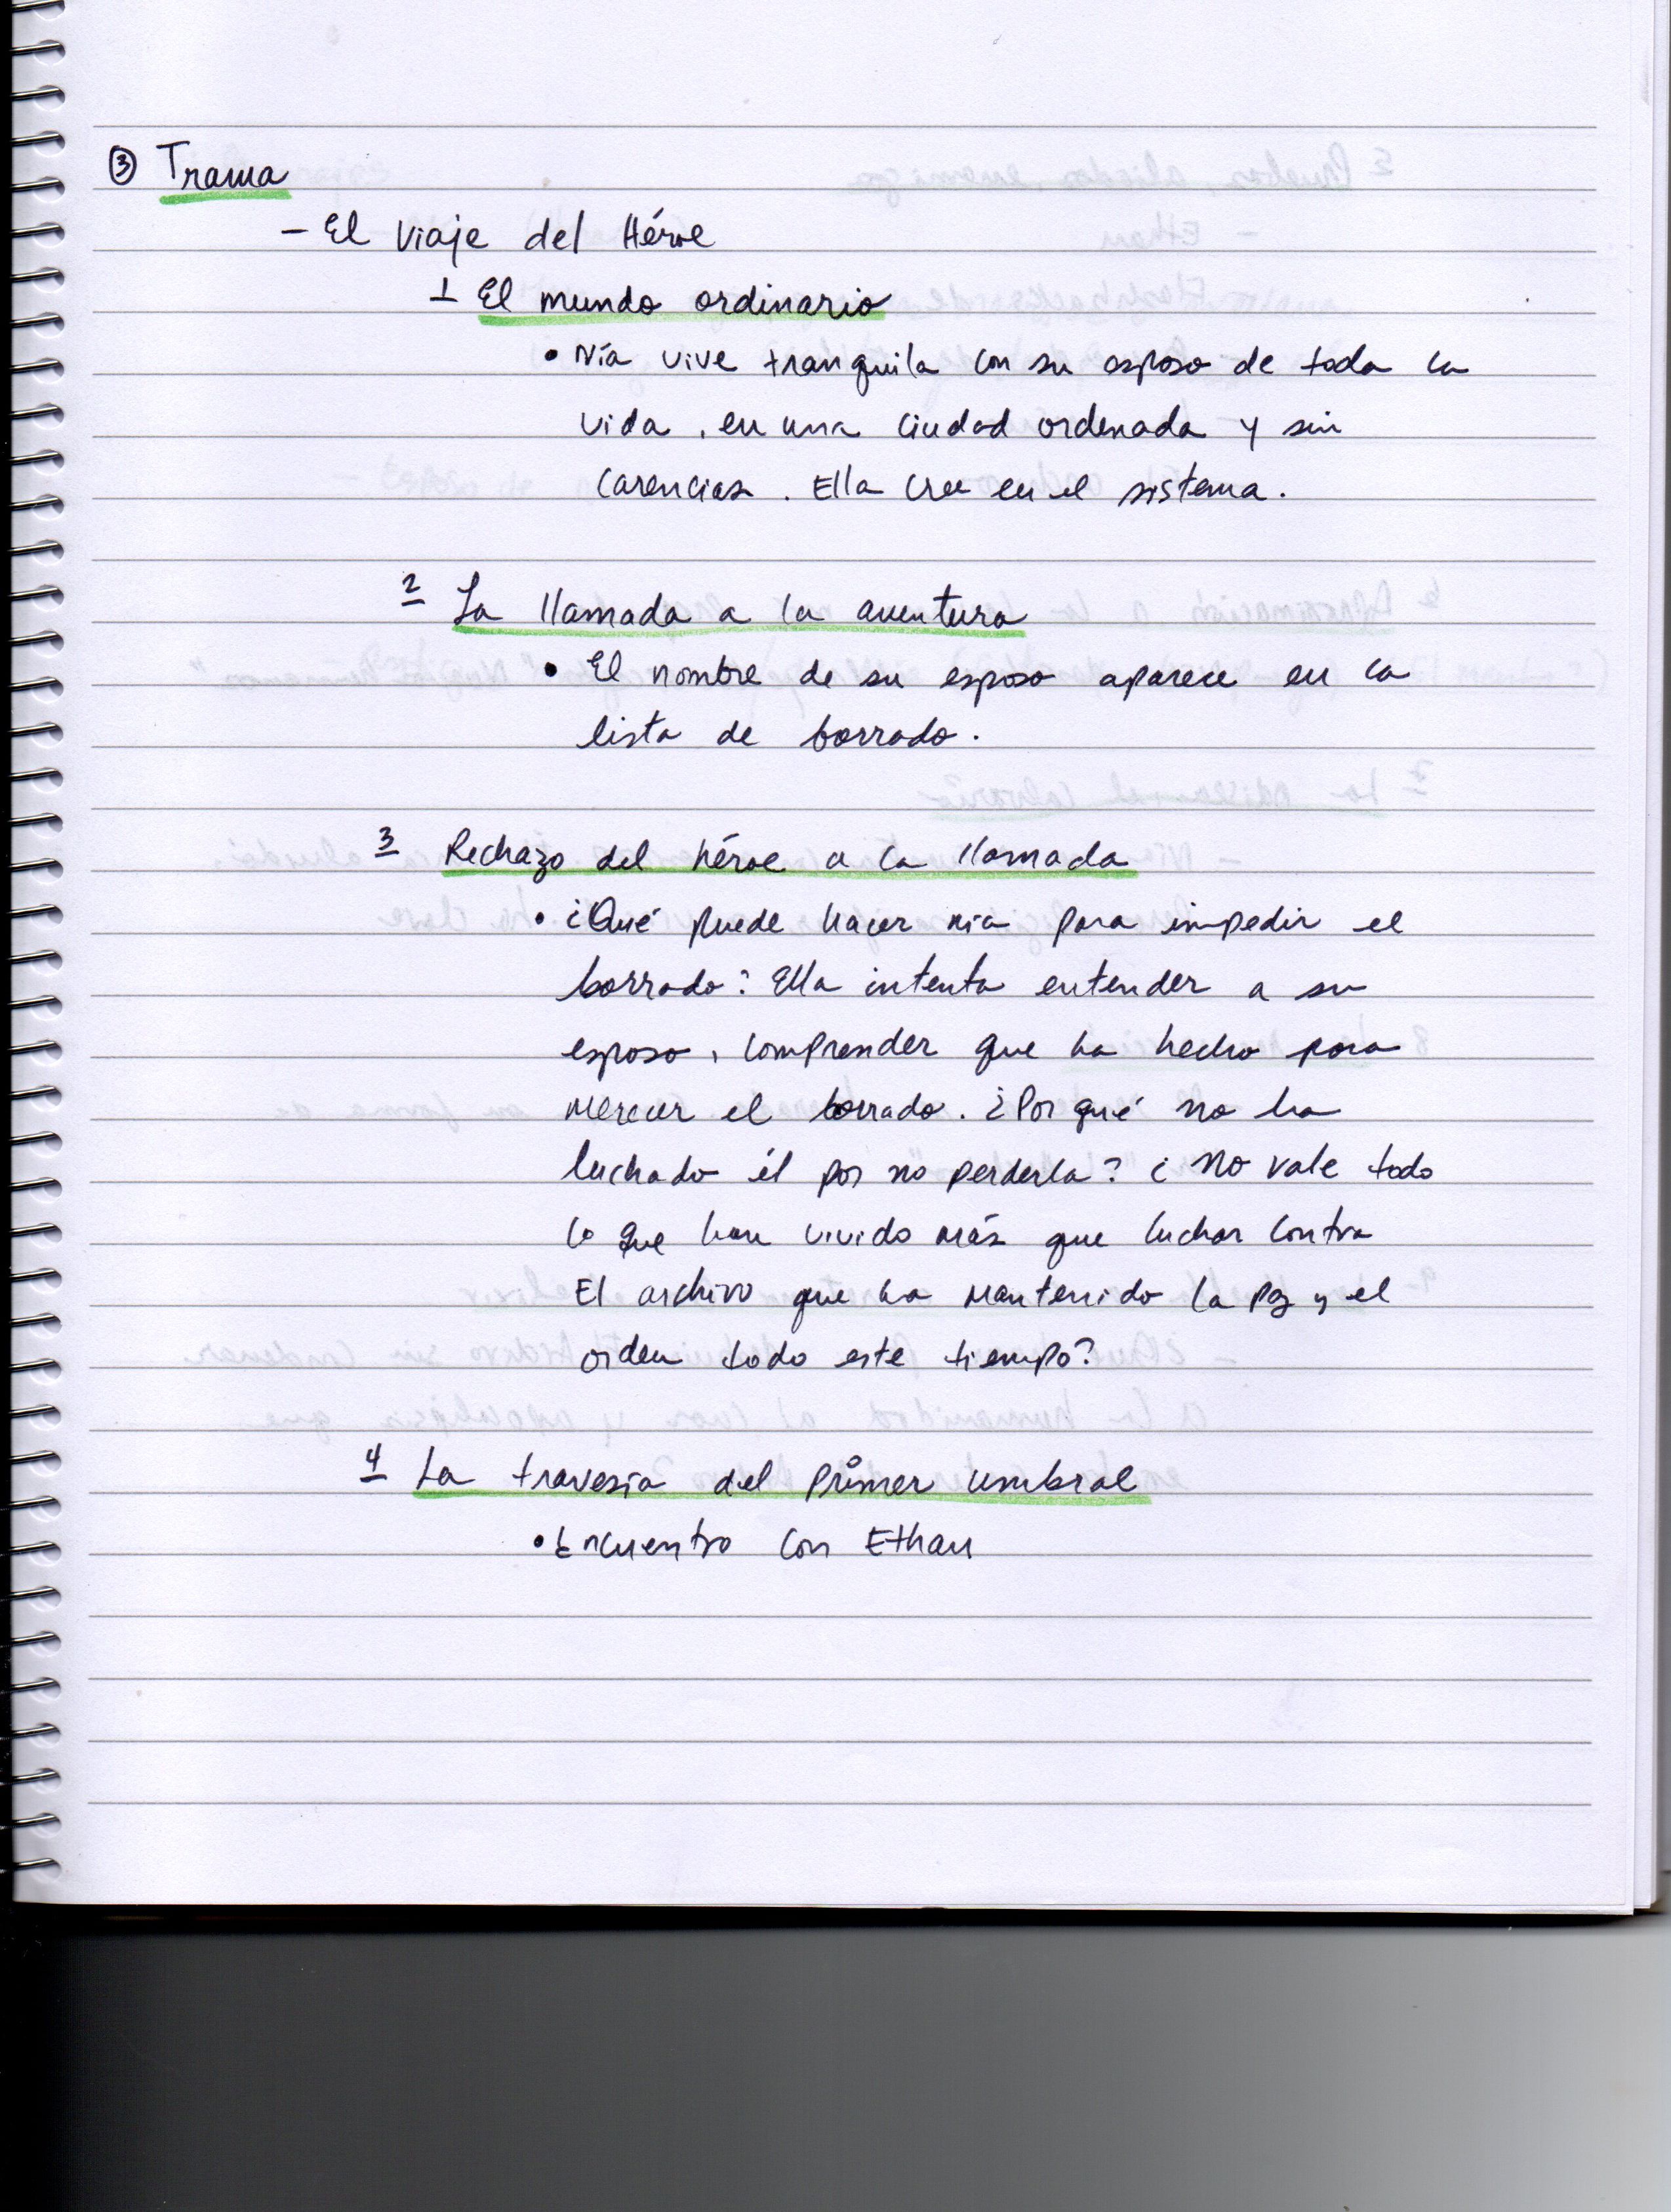 ③ Trama
- El viaje del Héroe
1 El mundo ordinario
• Nía vive tranquila con su esposo de toda la
vida, en una ciudad ordenada y sin
carencias. Ella cree en el sistema.
2 La llamada a la aventura
• El nombre de su esposo aparece en la
lista de borrado.
3 Rechazo del héroe a la llamada
• ¿Qué puede hacer nia para impedir el
borrado? Ella intenta entender a su
esposo, comprender que ha hecho para
merecer el borrado. ¿Por qué no ha
luchado él por no perderla? ¿No vale todo
lo que han vivido más que luchar contra
El archivo que ha mantenido la paz y el
orden todo este tiempo?
4 La travesia del primer umbral
• Encuentro con Ethan